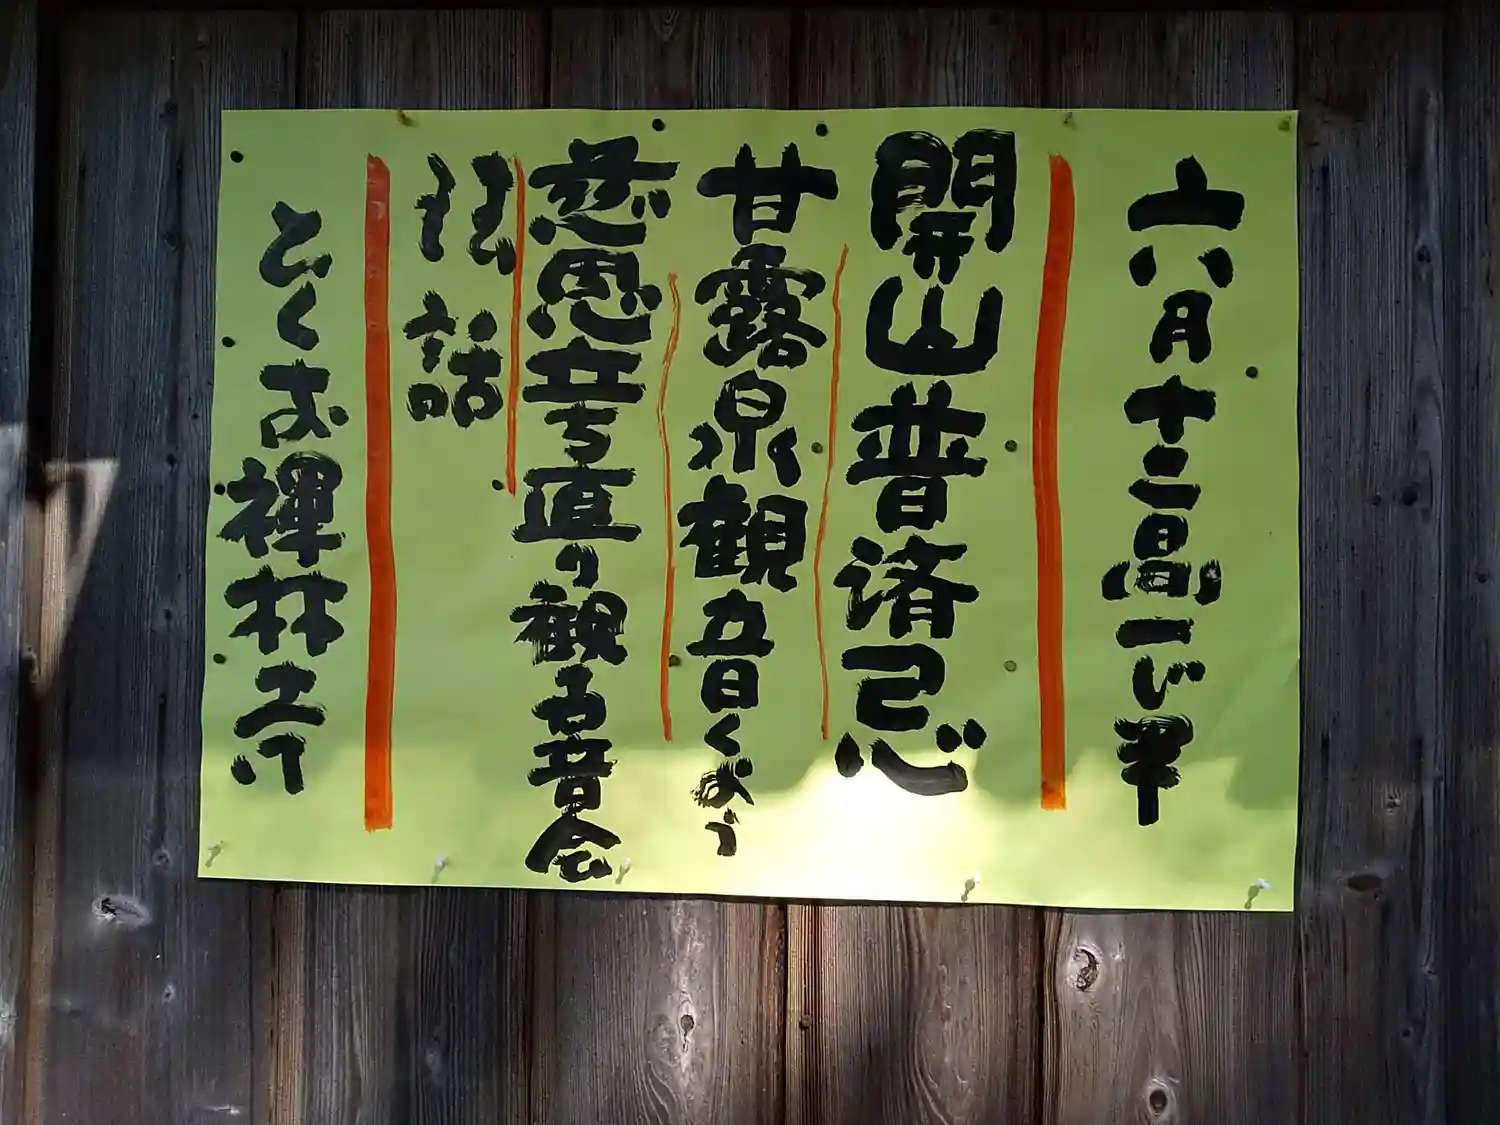 六月十二日(日)一じ半
開山普済忌
甘露泉観音くよう
慈恩立ち直り観音会
法話
とくお禅林